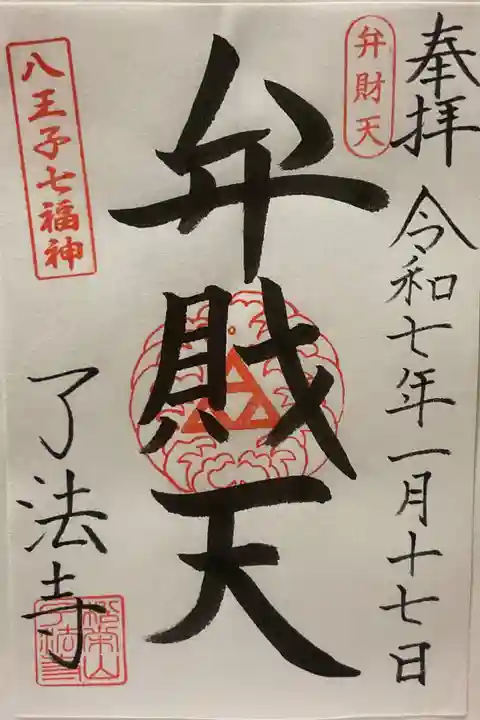 奉拝
令和七年一月十七日
弁財天
弁財天
八王子七福神
了法寺